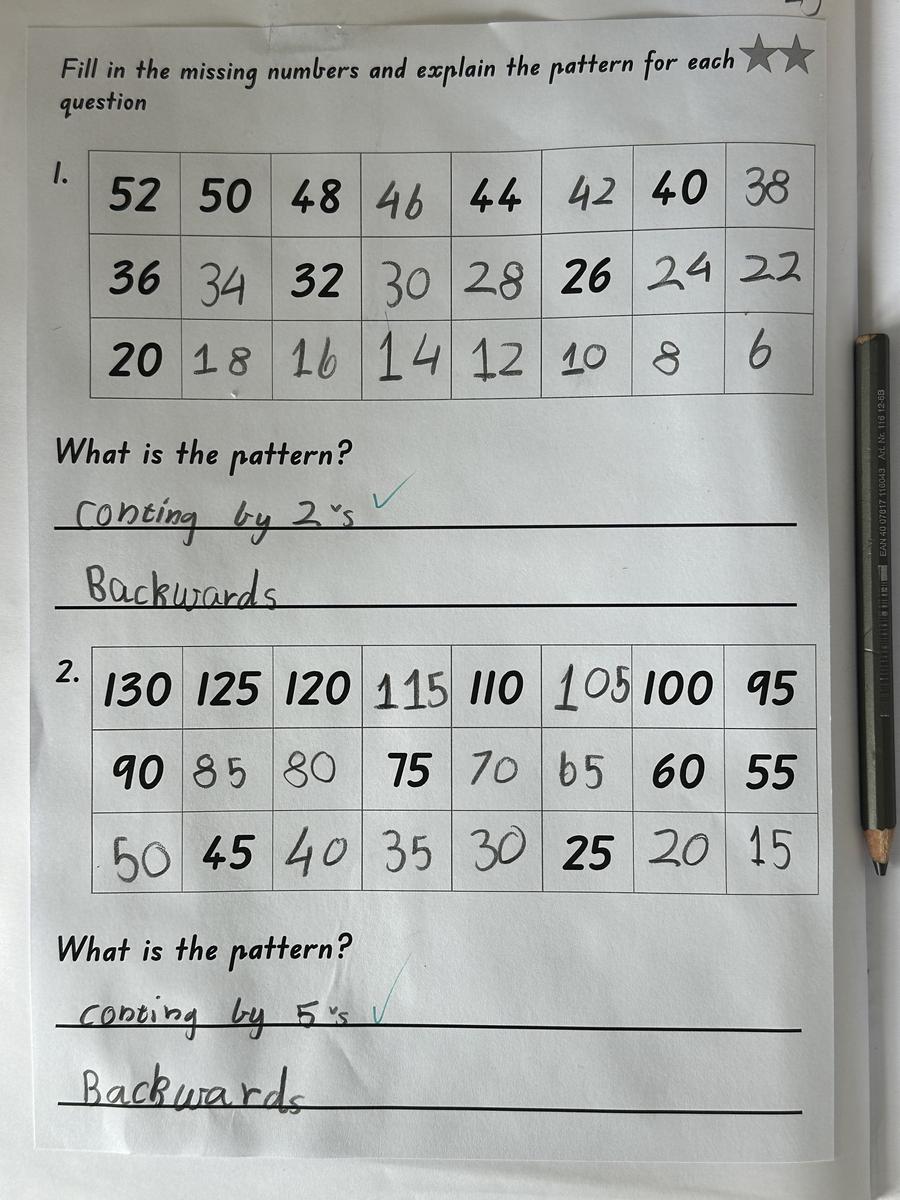 Fill in the missing numbers and explain the pattern for each
question
1.
52 50 48 46 44 42 40 38
36 34 32 30 28 26 24 22
20 18 16 14 12 10 8 6
What is the pattern?
conting by 2"s
Backwards
2.
130 125 120 115 110 105 100 95
90 85 80 75 70 65 60 55
50 45 40 35 30 25 20 15
What is the pattern?
conting by 5"s
Backwards
EAN 40 07817 116043 Art. Nr. 116 12-6B